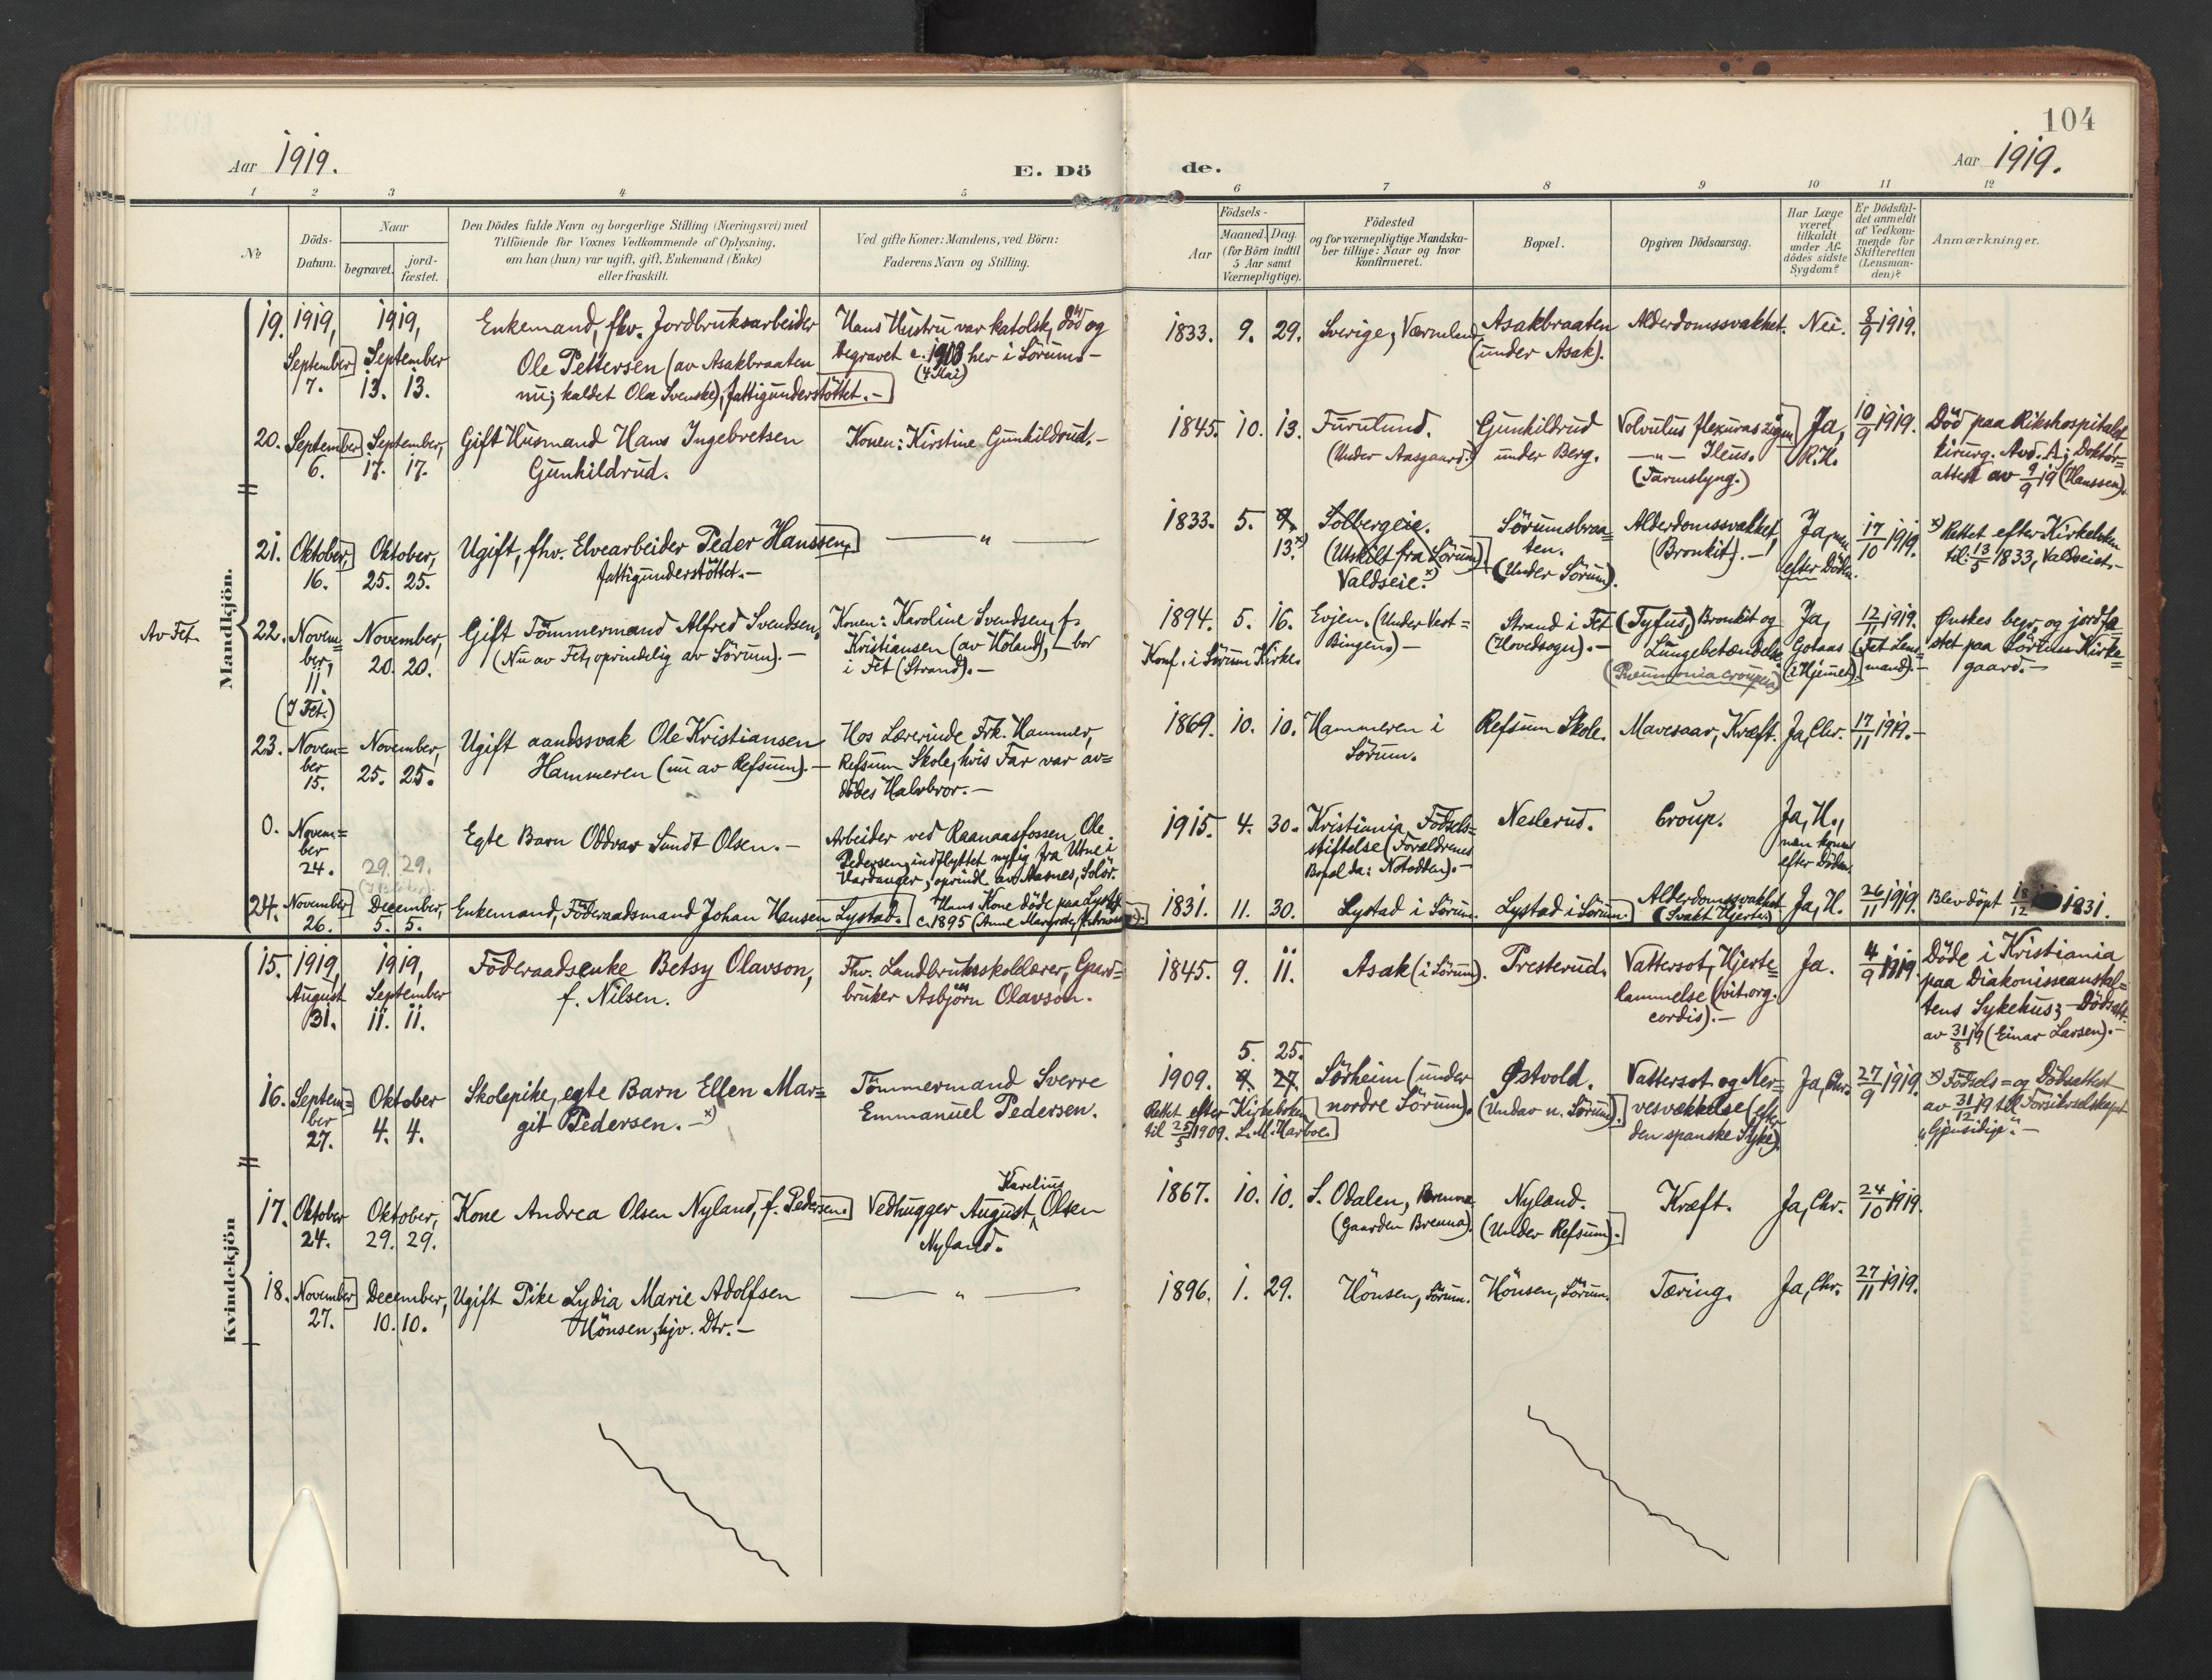 104
Aar 1919.
E. Dö de.
Aar 1919.
1 2 3 4 5 6 7 8 9 10 11 12
No
Döds-
Datum.
Naar
begravet.
jord-
fæstet.
Den Dödes fulde Navn og borgerlige Stilling (Næringsvei) med
Tilföiende for Voxnes Vedkommende af Oplysning,
om han (hun) var ugift, gift, Enkemand (Enke)
eller fraskilt.
Ved gifte Koner: Mandens, ved Börn:
Faderens Navn og Stilling.
Födsels-
Aar
Maaned. Dag.
(for Börn indtil
5 Aar samt
Værnepligtige).
Födested
og for værnepligtige Mandska-
ber tillige: Naar og hvor
konfirmeret.
Bopæl.
Opgiven Dödsaarsag.
Har Læge
været
tilkaldt
under Af-
dödes sidste
Sygdom?
Er Dödsfal-
det anmeldt
af Vedkom-
mende for
Skifteretten
(Lensman-
den)?
Anmærkninger.
Mandkjön.
19.
1919,
September
7.
1919,
September
13. 13.
Enkemand, fhv. Jordbruksarbeider
Ole Pettersen (av Asakbraaten
nu; kaldet Ola Svenske), fattigunderstöttet.-
Hans Hustru var katolsk, död og
begravet c. 1918 her i Sörum.-
(4 Mai)
1833. 9. 29.
Sverige, Værmland
Asakbraaten
(under Asak).
Alderdomssvakhet.
Nei.
8/9 1919.
20.
September
6.
September,
17. 17.
Gift Husmand Hans Ingebretsen
Gunhildrud.
Konen: Kirstine Gunhildrud.-
1845. 10. 13.
Furulund.
(Under Aasgaard.)
Gunhildrud
under Berg.
Volvulus flexuras sigm
-"- Ileus.
(Tarmslyng.)
Ja,
R.H.
10/9 1919.
Död paa Rikshospitalet
kirurg. Avd. A; Doktor=
attest av 9/9 19 (Hanssen).
21.
Oktober,
16.
Oktober,
25. 25.
Ugift, fhv. Elvearbeider Peder Hanssen,
fattigunderstöttet.-
- " -
1833. 5. 9.
13.x)
Solbergeie.
(Utskilt fra Sörum)
Valdseie.x)
Sörumsbraa=
ten.
(Under Sörum).
Alderdomssvakhet
(Bronkit).-
Ja, men
efter Döden.
17/10 1919.
x) Rettet efter Kirkeboken
til: 13/5 1833, Valdseiet.-
Av Fet.
22.
Novem=
ber,
11.
(I Fet.)
November,
20. 20.
Gift Tömmermand Alfred Svendsen,
(Nu av Fet, oprindelig av Sörum).-
Konen: Karoline Svendsen, f.
Kristiansen (av Höland), bor
i Fet (Strand).-
1894. 5. 16.
Konf. i Sörum Kirke.
Evjen. (Under Vest=
Bingen)-
Strand i Fet
(Hovedsogn).-
(Tyfus,) Bronkit og
Lungebetændelse
(Pneumonia crouposa)
Ja,
Gotaas
(i Hjemmet).
12/11 1919.
(Fet Lens=
mand).-
Ønskes begr. og jordfæ
stet paa Sörum Kirke=
gaard.-
23.
Novem=
ber
15.
November,
25. 25.
Ugift aandssvak Ole Kristiansen
Hammeren (nu av Refsum).-
Hos Lærerinde Frk. Hammer,
Refsum Skole, hvis Far var av=
dödes Halvbror.-
1869. 10. 10.
Hammeren i
Sörum.
Refsum Skole.
Mavesaar, Kræft.
Ja, Chr.
17/11 1919.-
0.
Novem=
ber
24.
29. 29.
Egte Barn Oddvar Sundt Olsen.-
Arbeider ved Raanaasfossen, Ole
Pedersen, indflyttet nylig fra Utne i
Hardanger, oprindl. av Aasnes, Solör.
1915. 4. 30.
Kristiania Födsels=
stiftelse (Forældrenes
Bopæl da: Notodden).-
Neslerud.
Croup.
Ja, H.,
men kom
efter Döden.
24.
November
26.
December,
5. 5.
Enkemand, Föderaadsmand Johan Hansen Lystad.
Hans Kone döde paa Lystad
c. 1895 (Anne Margrethe
1831. 11. 30.
Lystad i Sörum.
Lystad i Sörum.
Alderdomssvakhet
(Svakt Hjerte)
Ja, H.
26/11 1919.
Blev döpt 18/12 1831.
Kvindekjön
15.
1919,
August
31.
1919,
September
11. 11.
Föderaadsenke Betsy Olavson,
f. Nilsen.
Fhv. Landbruksskolelærer, Gaard=
bruker Asbjörn Olavsön.
1845. 9. 11.
Asak (i Sörum).
Presterud.
Vattersot, Hjerte=
lammelse (vit. org.
cordis).-
Ja.
4/9 1919.
Döde i Kristiania
paa Diakonisseanstal=
tens Sykehus; - Dödsatt.
av 31/8 19 (Einar Larsen).-
16.
Septem=
ber
27.
Oktober
4. 4.
Skolepike, egte Barn Ellen Mar=
git Pedersen.-x)
Tömmermand Sverre
Emmanuel Pedersen.
5. 25.
1909. 9. 27.
Rettet efter Kirkeboken
til 25/5 1909. L.M. Harboe.
Sörheim (under
nordre Sörum).
Østvold.
(Undav n. Sörum).
Vattersot og Ner=
vesvækkelse (efter
den spanske Syke).
Ja, Chr.
27/9 1919.
x) Födsels= og Dödsattest
av 31/12 19 til Forsikrselskapet
"Gjensidige".-
17.
Oktober
24.
Oktober,
29. 29.
Kone Andrea Olsen Nyland, f. Pedersen.
Karelius
Vedhugger August Olsen
Nyland.
1867. 10. 10.
S. Odalen, Brenna
(Gaarden Brenna).
Nyland.
(Under Refsum).
Kræft.
Ja, Chr.
24/10 1919.
18.
November
27.
December,
10. 10.
Ugift Pike Lydia Marie Adolfsen
Hönsen, hjv. Dtr.-
- " -
1896. 1. 29.
Hönsen, Sörum.
Hönsen, Sörum.
Tæring.
Ja, Chr.
27/11 1919.